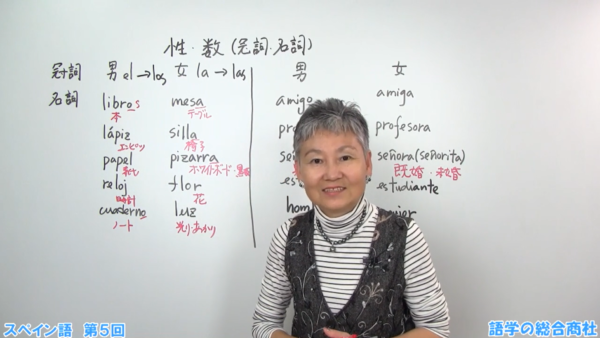 性・数(冠詞・名詞)
冠詞 男 el→los 女 la→las
男 女
名詞 libros mesa
本 テーブル
amigo amiga
lápiz silla
エンピツ 椅子
profesora
papel pizarra
紙 ホワイトボード・黒板
señora(señorita)
既婚・未婚
reloj flor
時計 花
estudiante
cuaderno luz
ノート 光り・あかり
スペイン語 第5回
語学の総合商社